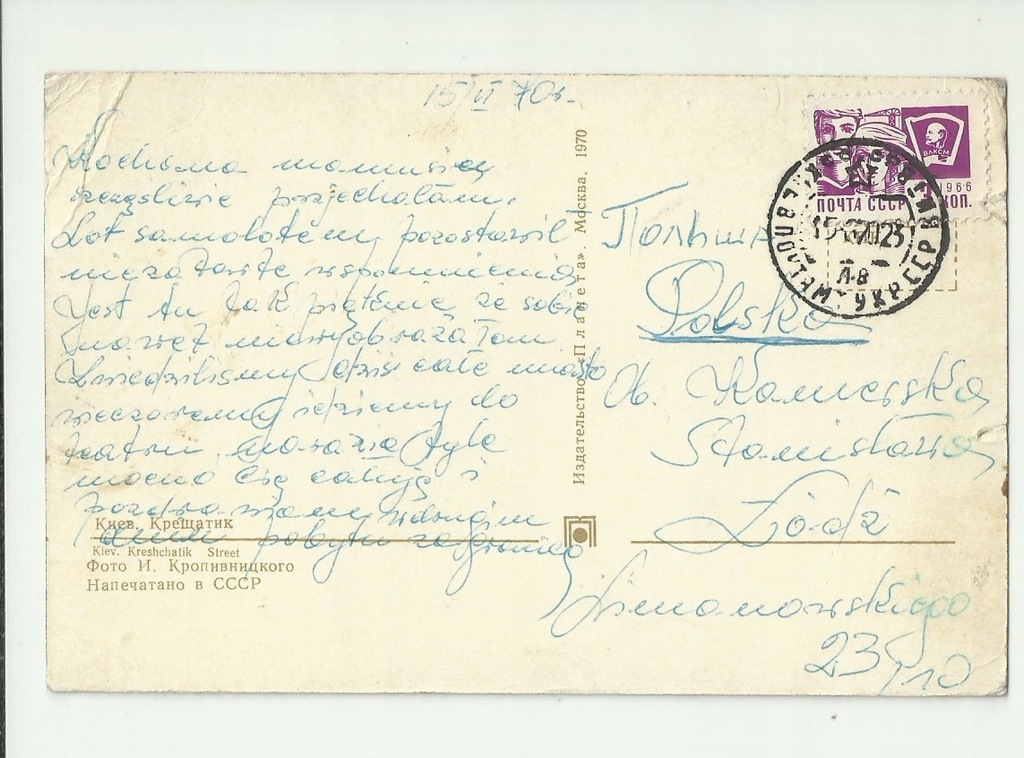 15/VI 70r.
Kochana mamusiu
szczęśliwie przyjechałam.
Lot samolotem pozostawił
niezatarte wspomnienia
Jest tu tak pięknie że sobie
nawet niewyobrażałam
Zwiedziliśmy dziś całe miasto
wieczorem idziemy do
teatru, narazie tyle
mocno Cię całuję i
pozdrawiamy w drugim
dniu pobytu zagranicą
Киев. Крещатик
Kiev. Kreshchatik Street
Фото И. Кропивницкого
Напечатано в СССР
Издательство «Планета». Москва, 1970
ВЛКСМ
1966
ПОЧТА СССР КОП.
УКР.ССР
Польша
Polska
Ob. Kamerska
Stanisława
Łódź
Limanowskiego
23/10